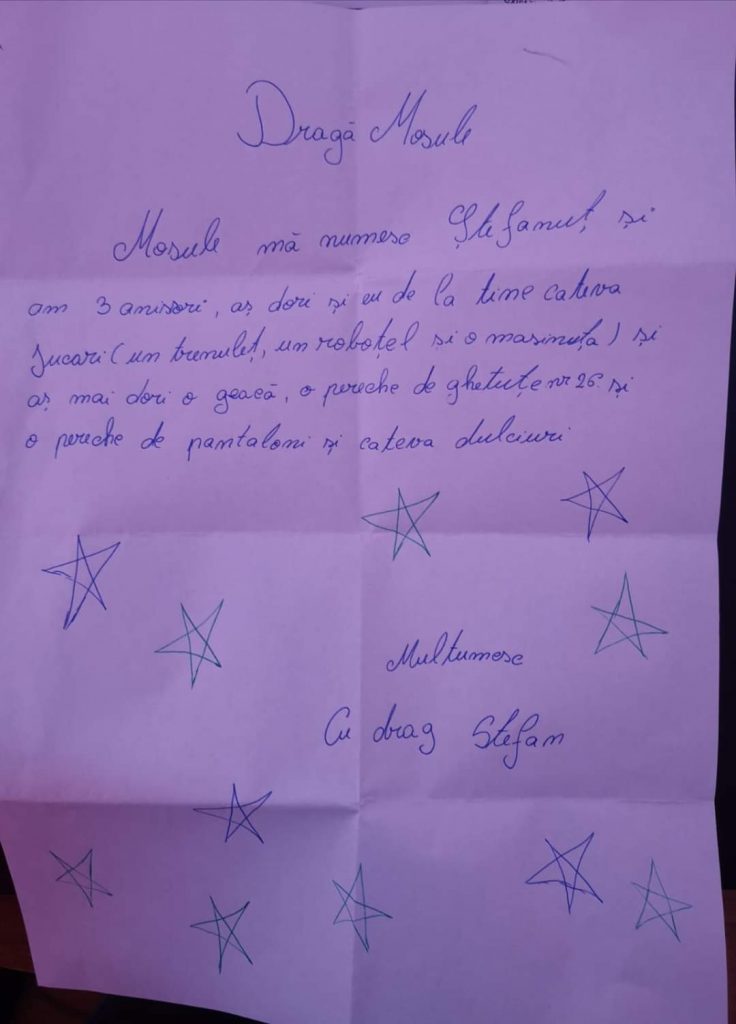 Dragă Mosule
Mosule mă numesc Ștefănuț și
am 3 anisori, aș dori și eu de la tine cateva
Jucari (un trenuleț, un roboțel și o masinuța) și
aș mai dori o geacă, o pereche de ghetuțe nr 26 și
o pereche de pantaloni și cateva dulciuri
Multumesc
Cu drag Stefan